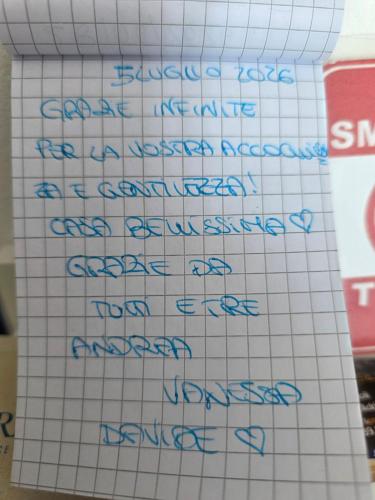 5 LUGLIO 2026
GRAZIE INFINITE
PER LA VOSTRA ACCOGLIEN
ZA E GENTILEZZA!
CASA BELLISSIMA ♡
GRAZIE DA
TUTTI E TRE
ANDREA
VANESSA
DAVIDE ♡
SM
T
R